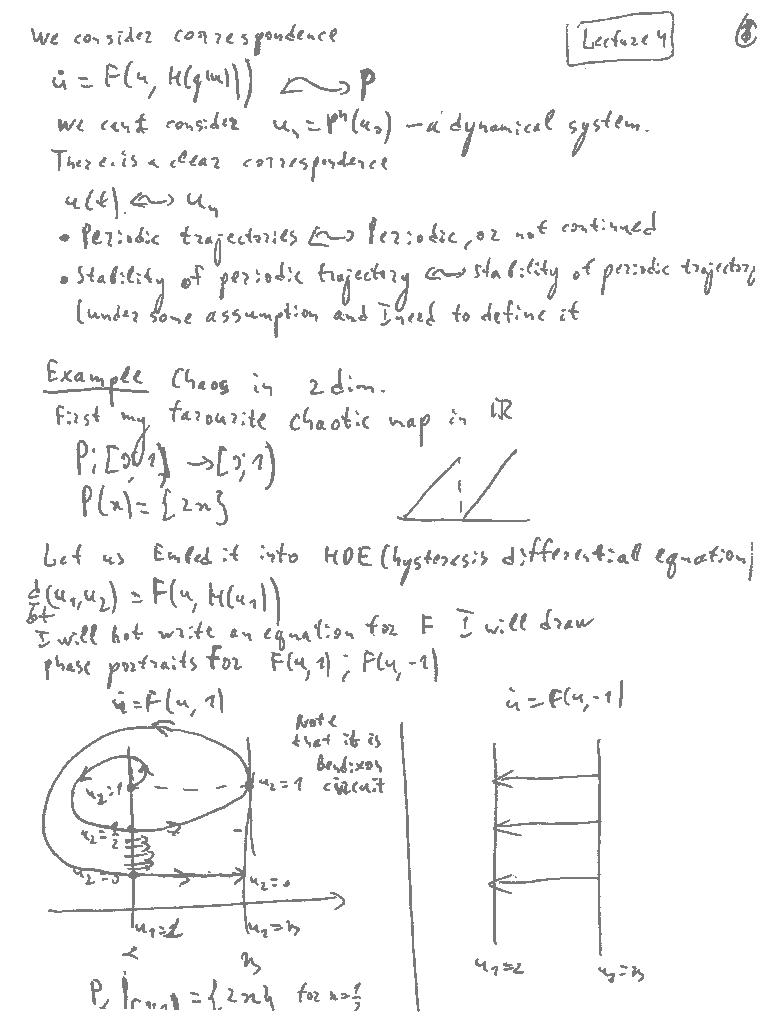 Lecture 4
We consider correspondence
u̇ = F(u, H(g(u))) ⟷ P
We can consider uₙ = Pⁿ(u₀) – a dynamical system.
There is a clear correspondence
u(t) ⟷ uₙ
• Periodic trajectories ⟷ Periodic, or not continued
• Stability of periodic trajectory ⟷ stability of periodic trajectory
(under some assumption and I need to define it
Example Chaos in 2 dim.
First my favourite chaotic map in ℝ
P: [0; 1) → [0; 1)
P(x) = {2x}
Let us Embed it into HDE (hysteresis differential equation)
d/dt (u₁, u₂) = F(u, H(u₁))
I will not write an equation for F I will draw
phase portraits for F(u, 1) ; F(u, -1)
u̇ = F(u, 1)
Note
that it is
Bendixon
circuit
u₂=1
u₂=1
u₂=½
u₂=0
u₂=0
u₁=α
u₂=β
α
β
u̇ = F(u, -1)
u₁=α
u₂=β
= {2x} for x=½